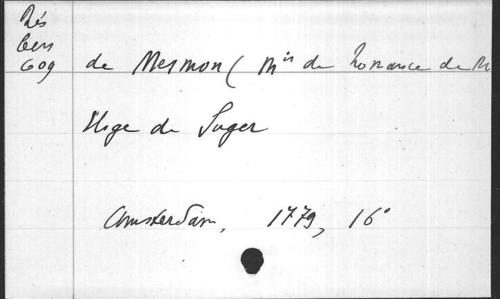 Rés
Cen
609
de Mesmon ( Mis de Romance de M
Eloge de Suger
Amsterdam, 1779, 16°